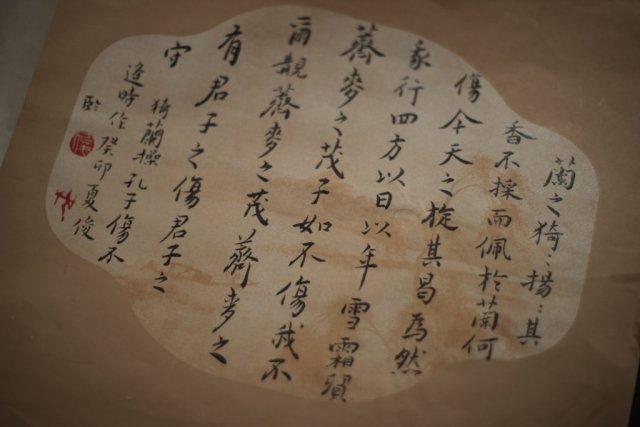 蘭之猗〻揚〻其
香不採而佩於蘭何
傷今天之旋其曷為然
我行四方以日以年雪霜貿
薺麥之茂子如不傷我不
爾覯薺麥之茂薺麥之
有君子之傷君子之
守
猗蘭操孔子傷不
逢時作癸卯夏俊
熙